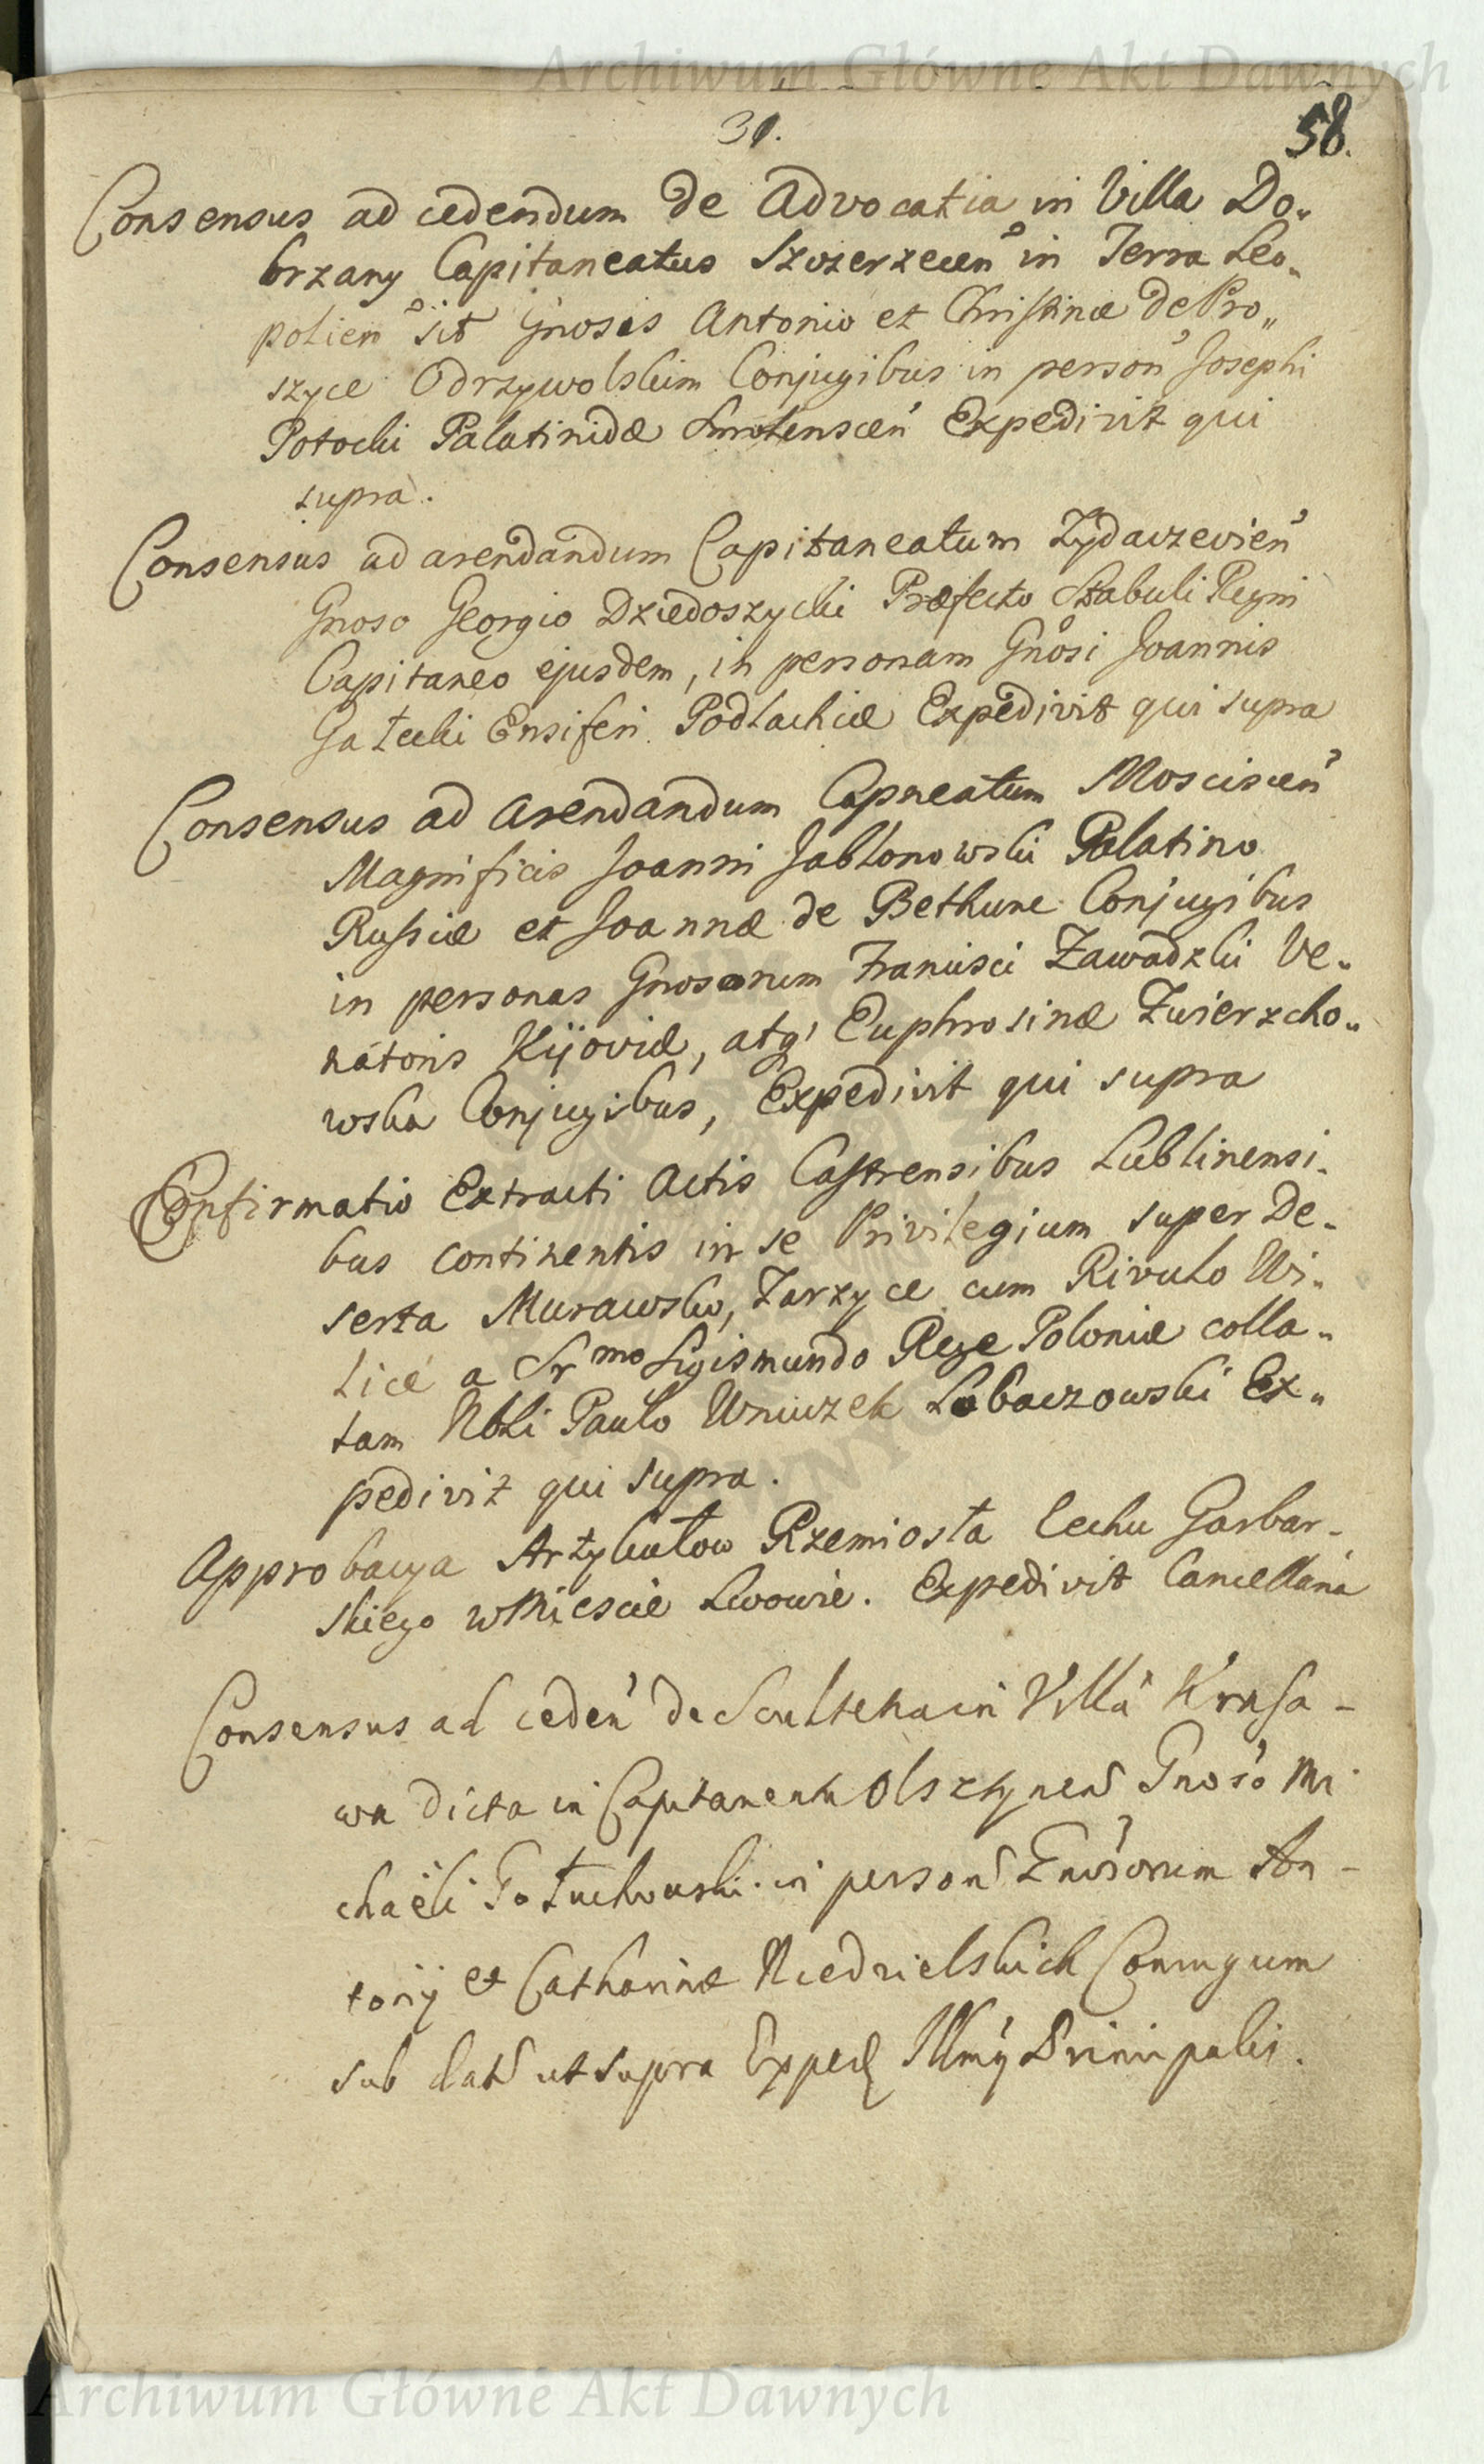 Archiwum Główne Akt Dawnych
31.
58.
Consensus ad cedendum de Advocatia in Villa Do„
brzany Capitaneatus Szczerzecen in Terra Leo„
polien sit Gnosis Antonio et Christinæ de Pro„
szyce Odrzywolskim Conjugibus in person Josephi
Potocki Palatinidæ Smolenscen Expedivit qui
supra.
Consensus ad arendandum Capitaneatum Zydaczevien
Gnoso Georgio Dziedoszycki Præfecto Stabuli Regni
Capitaneo ejusdem, in personam Gnosi Joannis
Gałecki Ensiferi Podlachiæ Expedivit qui supra
Consensus ad arendandum Capneatum Mosciscen
Magnificis Joanni Jabłonowski Palatino
Russiæ et Joannæ de Bethune Conjugibus
in personas Gnosorum Francisci Zawadzki Ve„
natoris Kijoviæ, atq Euphrosinæ Zwierzcho„
wska Conjugibus, Expedivit qui supra
Confirmatio Extracti Actis Castrensibus Lublinensi„
bus continentis in se Privilegium super De„
serta Murawsko, Zarzyce cum Rivulo Wi„
licé a Srmo Sigismundo Rege Poloniæ colla„
tam Nbli Paulo Wniuzek Lobaczowski Ex„
pedivit qui supra.
Approbacya Artykułow Rzemiosła Cechu Garbar„
skiego w Miescie Lwowie. Expedivit Cancellaria
Consensus ad ceden de Scultetia in Villa Krasa-
wa dicta in Capitaneatu Olsztynen Gnoso Mi
chaëli Gołuchowski in person Gnosorum An-
tonij et Catharinæ Niedzielskich Coniugum
sub dat ut supra Exped Illmi Principalis.
Archiwum Główne Akt Dawnych